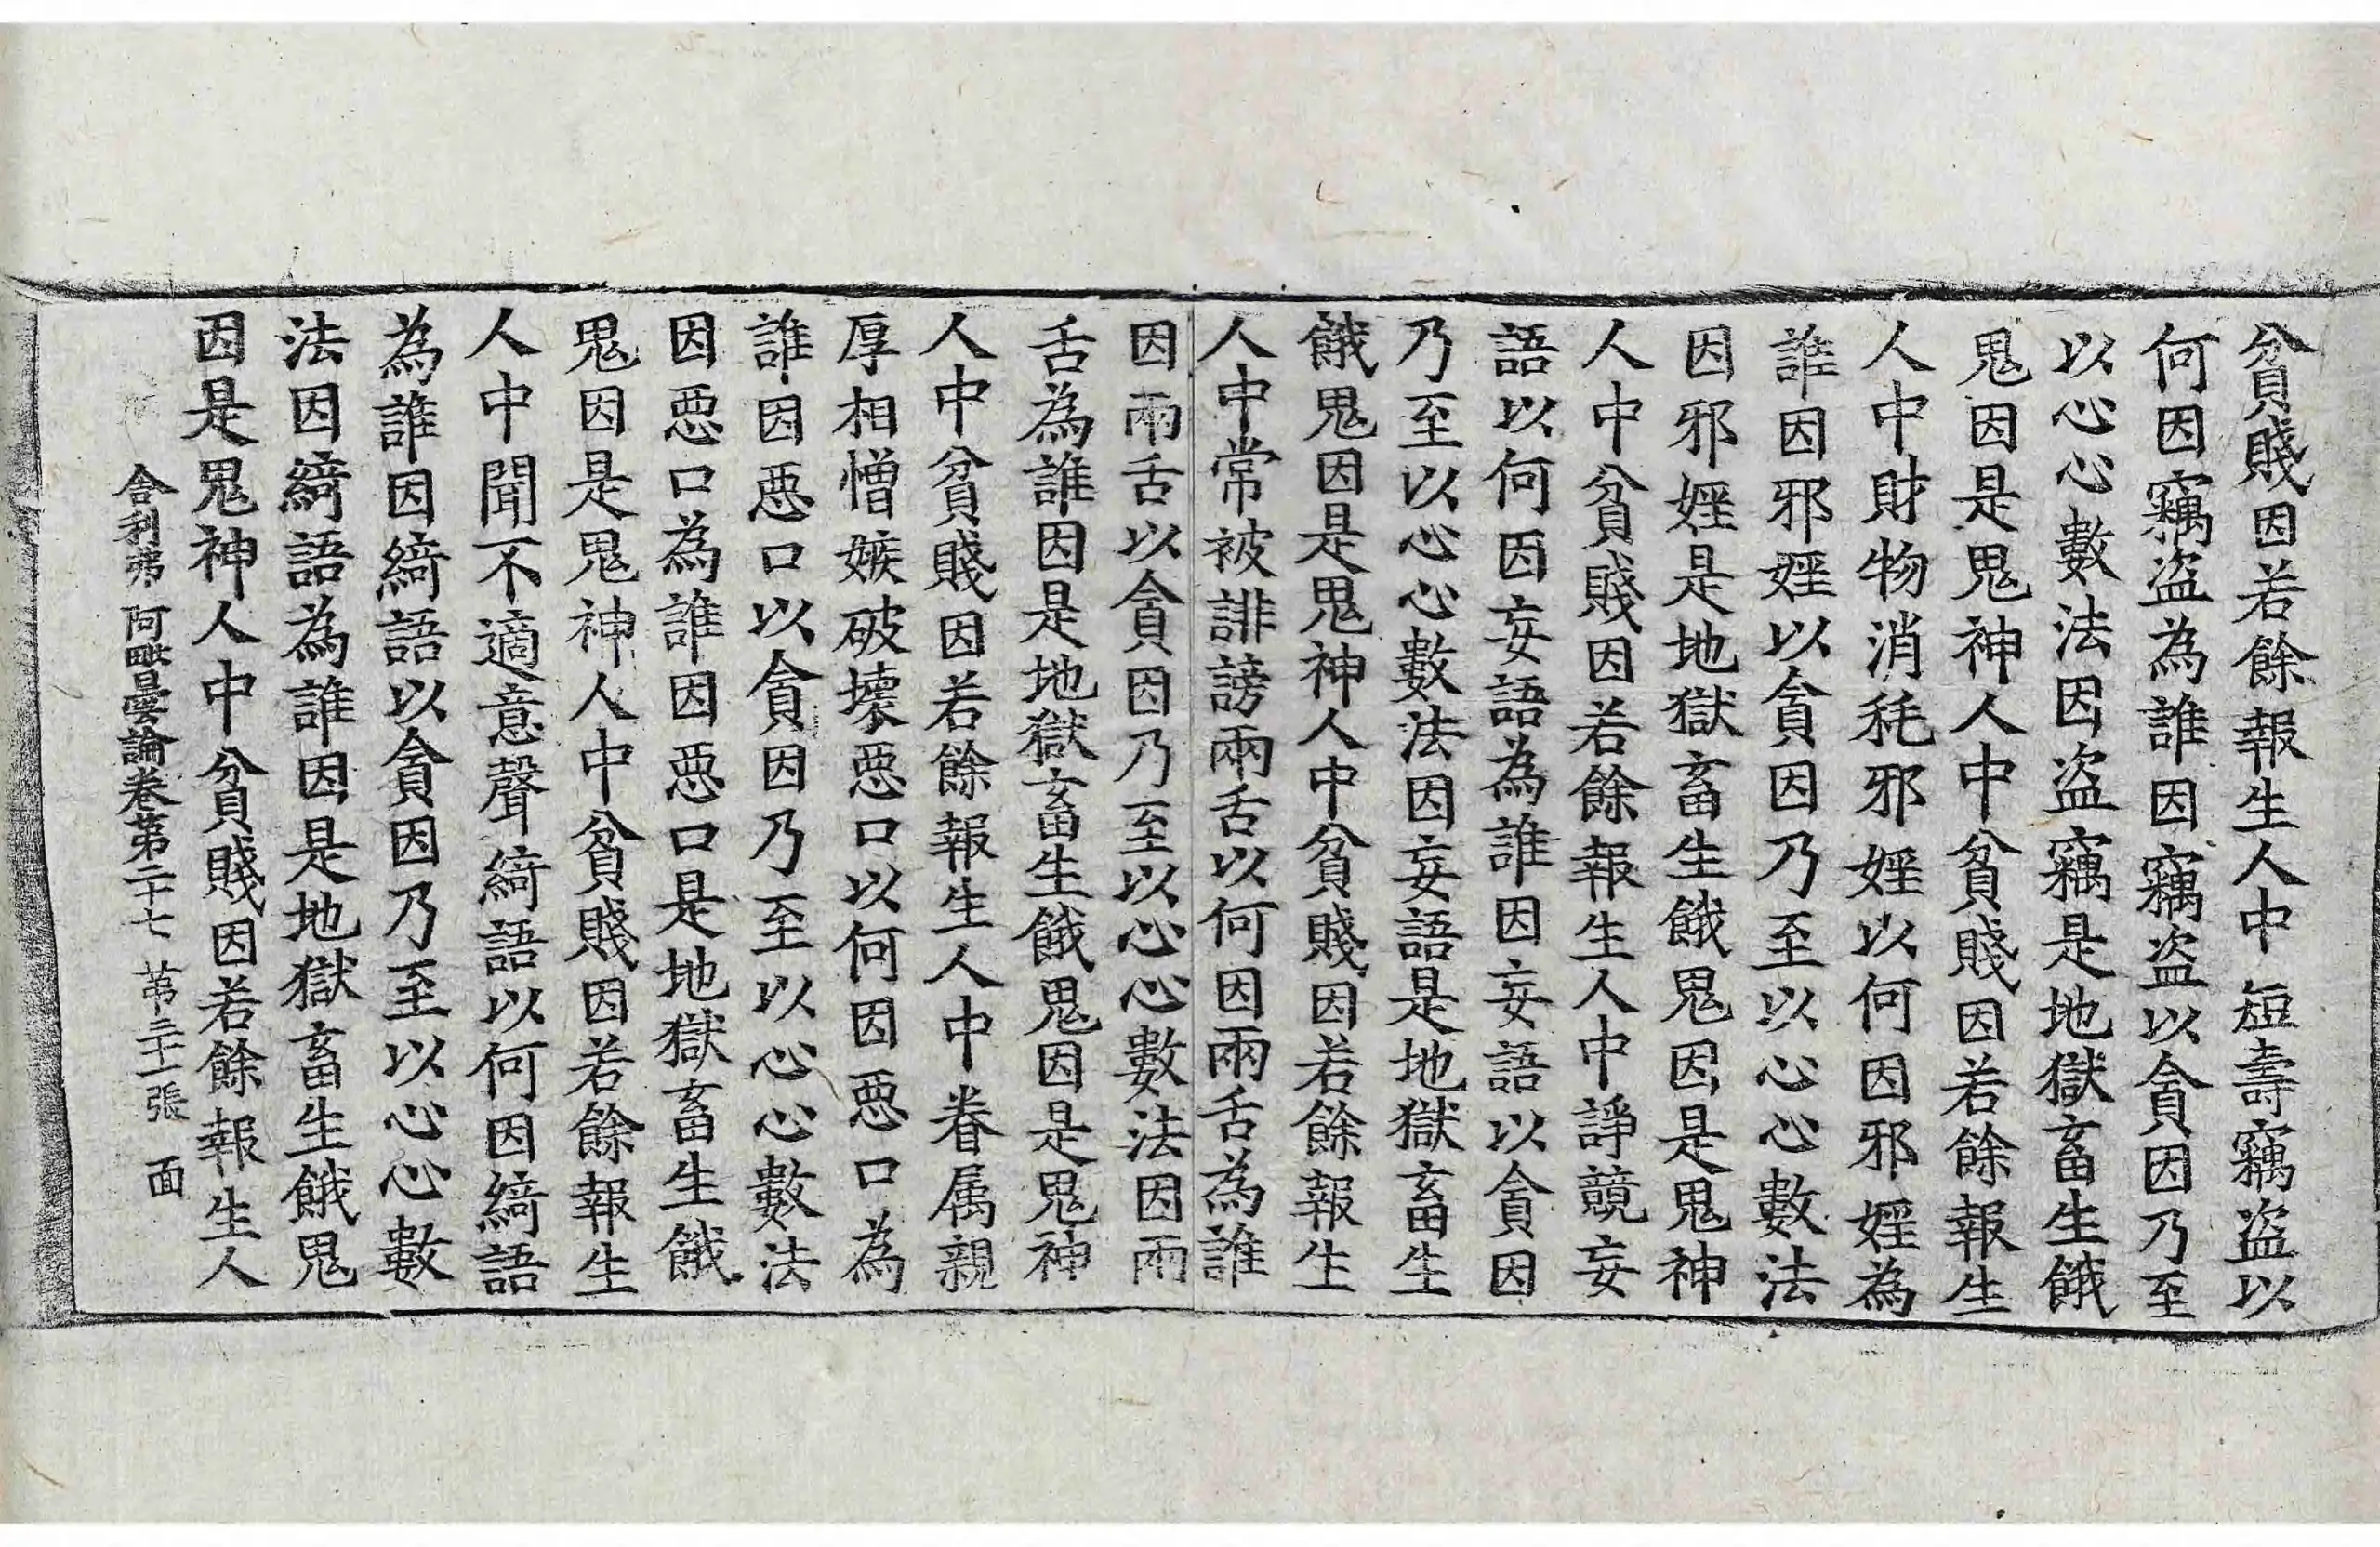 貧賤因若餘報生人中短壽竊盜以
何因竊盜為誰因竊盜以貪因乃至
以心心數法因盜竊是地獄畜生餓
鬼因是鬼神人中貧賤因若餘報生
人中財物消耗邪婬以何因邪婬為
誰因邪婬以貪因乃至以心心數法
因邪婬是地獄畜生餓鬼因是鬼神
人中貧賤因若餘報生人中諍競妄
語以何因妄語為誰因妄語以貪因
乃至以心心數法因妄語是地獄畜生
餓鬼因是鬼神人中貧賤因若餘報生
人中常被誹謗兩舌以何因兩舌為誰
因兩舌以貪因乃至以心心數法因兩
舌為誰因是地獄畜生餓鬼因是鬼神
人中貧賤因若餘報生人中眷属親
厚相憎嫉破壞惡口以何因惡口為
誰因惡口以貪因乃至以心心數法
因惡口為誰因惡口是地獄畜生餓
鬼因是鬼神人中貧賤因若餘報生
人中聞不適意聲綺語以何因綺語
為誰因綺語以貪因乃至以心心數
法因綺語為誰因是地獄畜生餓鬼
因是鬼神人中貧賤因若餘報生人
舍利弗阿毗曇論卷第二十七 第張 面